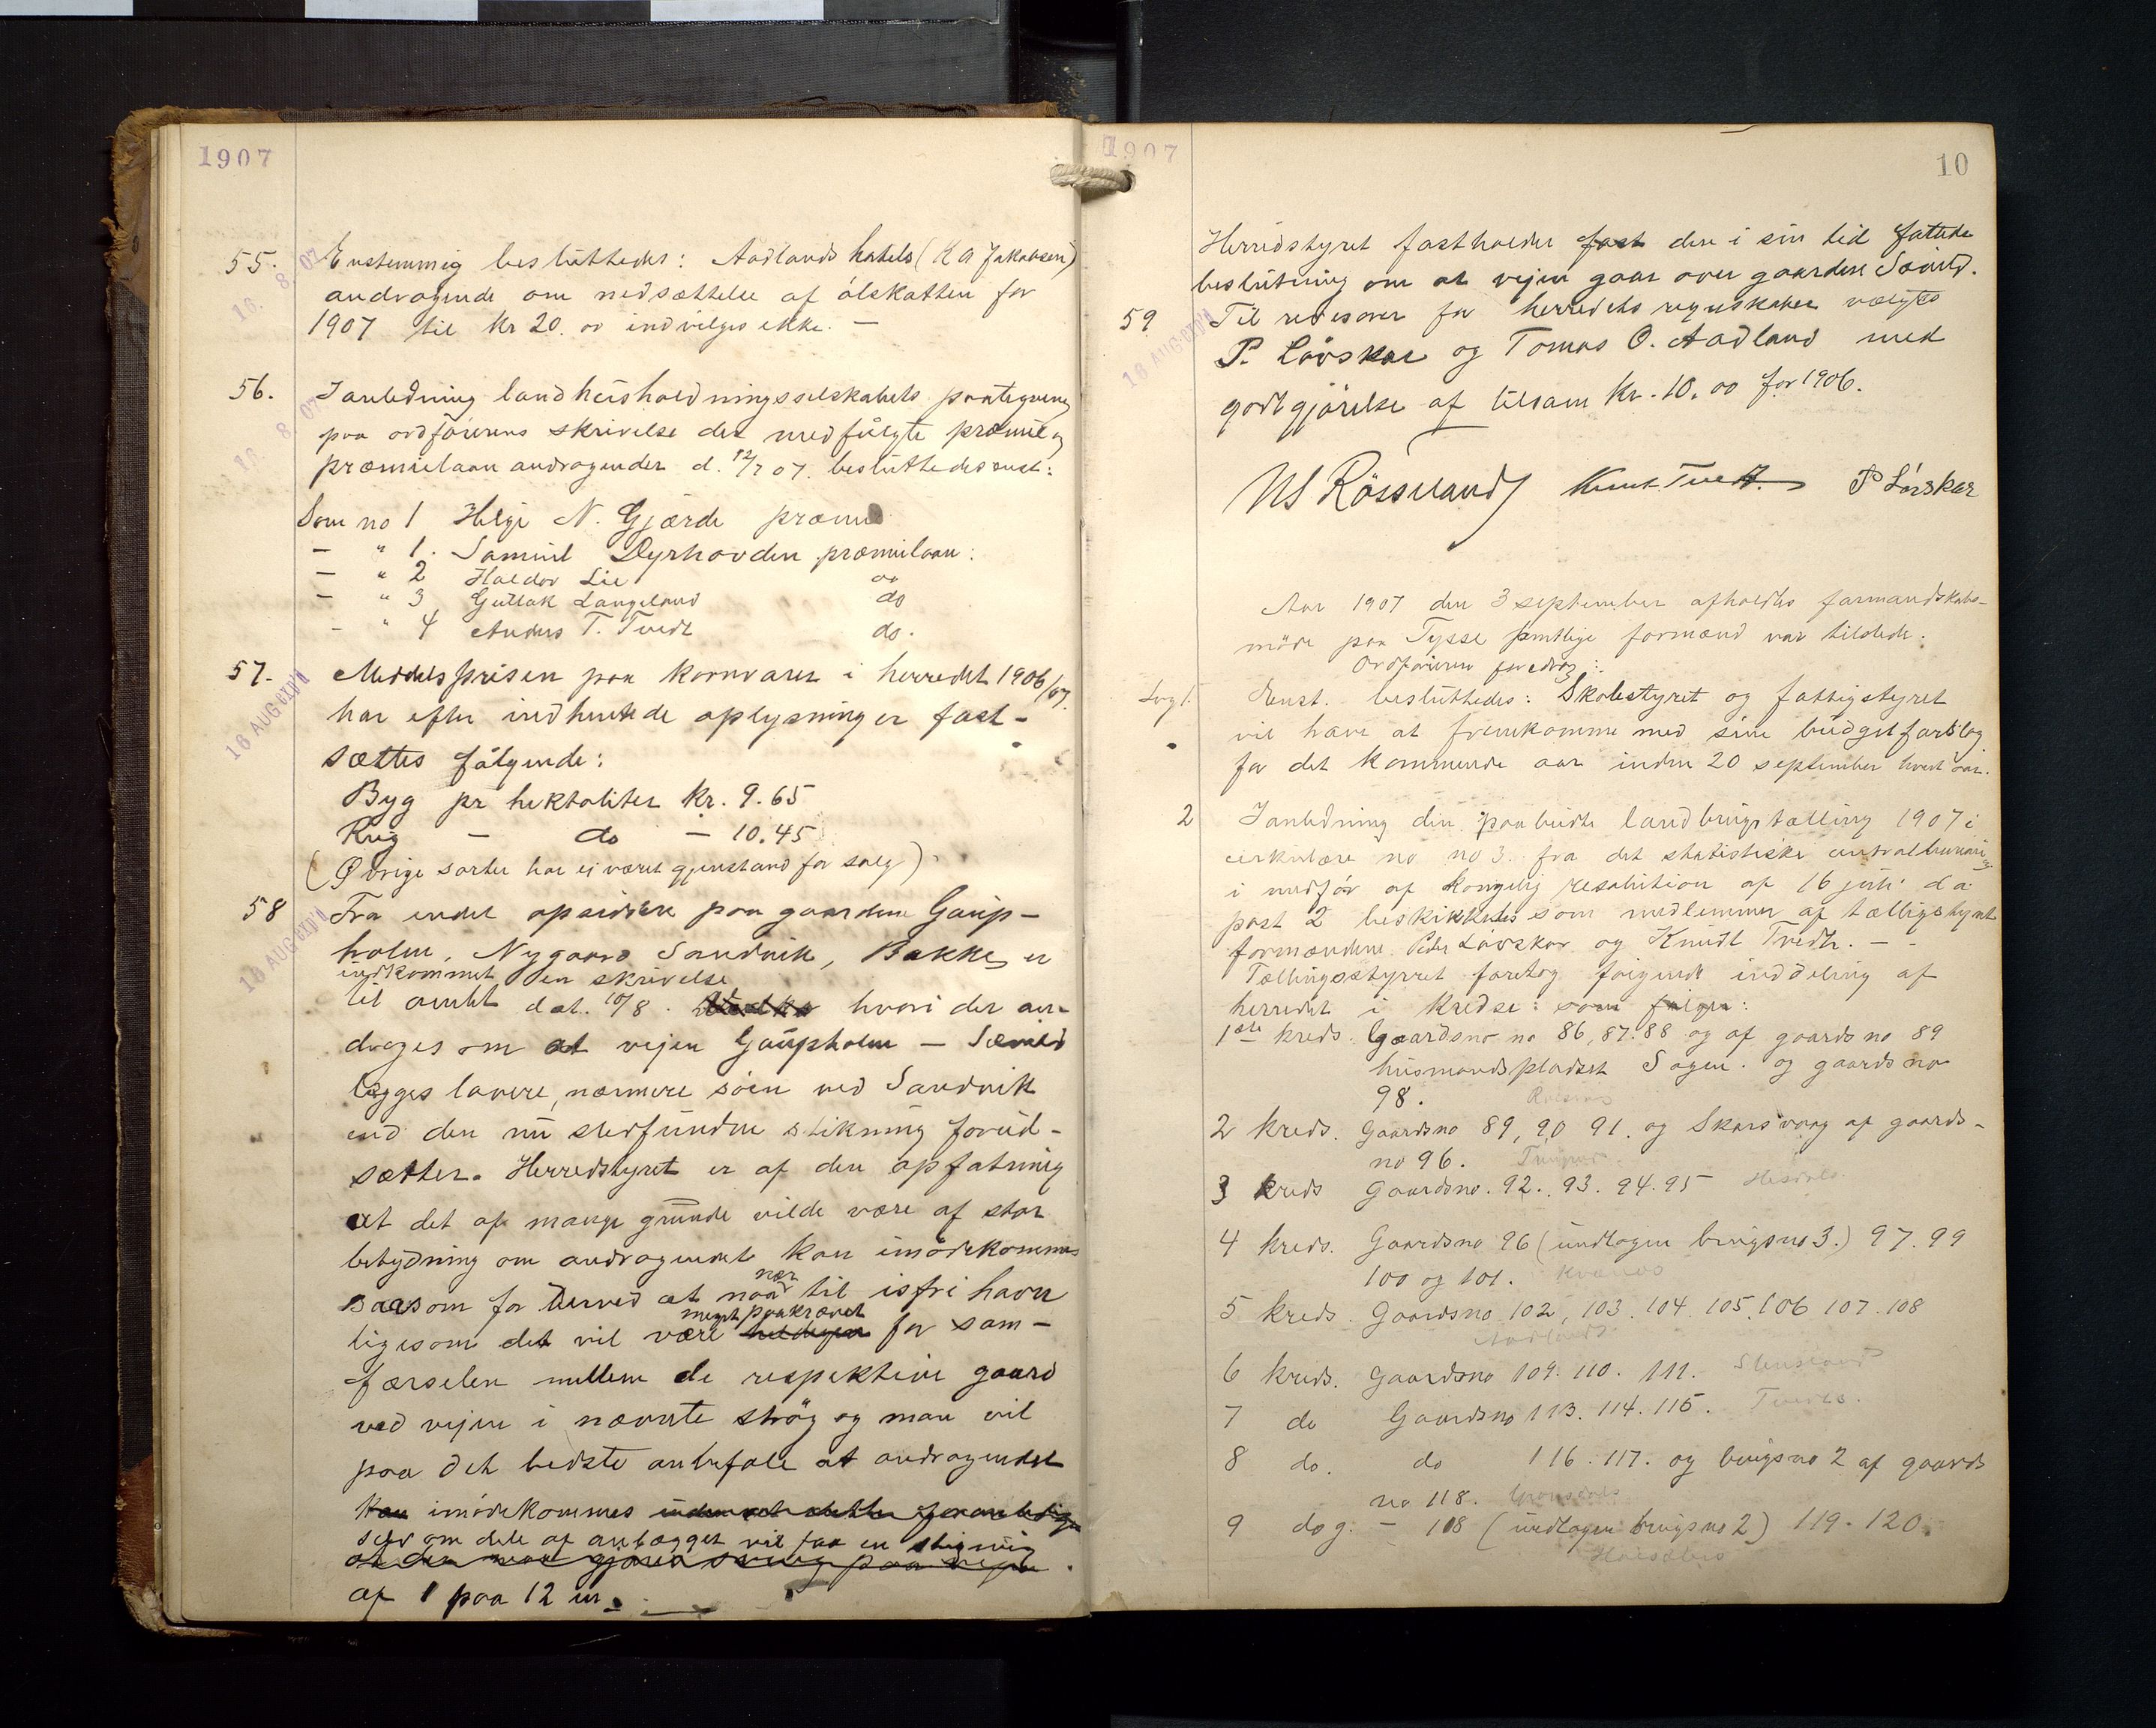 1907
55. Enstemmig besluttedes: Aadlands hotels (K A Jakobsen)
16. 8. 07
andragende om nedsættelse af ölskatten for
1907 til kr 20.00 indvilges ikke. —
56. I anledning landhusholdningsselskabets paategning
16. 8. 07
paa ordförerens skrivelse der medfulgte præmie og
præmielaan andragender d. 12/7 07. besluttedes enst:
Som no 1 Helge N. Gjærde præmie
— " 1. Samuel Dyrhovden præmielaan:
— " 2 Haldor Lie do
— " 3 Gullak Langeland do
— " 4 Anders T. Tvedt do.
57. Middelsprisen paa kornvarer i herredet 1906/07.
16 AUG
har efter indhentede oplysninger fast-
sættes fölgende:
Byg pr hektoliter kr. 9.65
Rug — do — 10.45
(Övrige sorter har ej været gjenstand for salg)
58 Fra endel opsiddere paa gaardene Gaup-
16 AUG
holm, Nygaard Sandvik, Bakke, er
indkommet en skrivelse
til amtet dat. 10/8. hvori der an-
drages om at vejen Gaupholm — Sævid
lægges lavere, nærmere söen ved Sandvik
end den nu stedfundne stikning forud-
sætter. Herredstyret er af den opfatning
at det af mange grunde vilde være af stor
betydning om andragendet kan imödekommes
saasom for derved at naa nær til isfri havn
meget paakrævet
ligesom det vil være heldigere for sam-
færselen mellem de respektive gaard
ved vejen i nævnte ströг og man vil
paa det bedste anbefale at andragendet
kan imödekommes
selv om dele af anlægget vil faa en stigning
af 1 paa 12 m.
1907
10
Herredstyret fastholder fast den i sin tid fattede
beslutning om at vejen gaar over gaarden Sævid.
59 Til revisorer for herredets regnskaber vælgtes
16 AUG
P. Lövskar og Tomas O. Aadland med
godtgjörelse af tilsam kr. 10.00 for 1906.
NS Rösseland Knut Tvedt P Lövskar
Aar 1907 den 3 september afholdtes formandskabs-
möde paa Tysse samtlige formænd var tilstede.
Ordföreren foredrog:
Sag 1. Enst. besluttedes: Skolestyret og fattigstyret
vil have at fremkomme med sine budgetforslag
for det kommende aar inden 20 september hvert aar.
2 I anledning den paabudte landbrugstælling 1907 i
cirkulære no no 3. fra det statistiske centralbureau og
i medför af kongelig resolution af 16 juli d.a.
post 2 beskikkedes som medlemmer af tællingstyret
formændene Peder Lövskar og Knudt Tvedt. —
Tællingsstyrret foretog fölgende inddeling af
herredet i kredse: som fölger:
1ste kreds. Gaardsno no 86, 87. 88 og af gaards no 89
husmandspladset Sagen. og gaards no
98.
2 kreds. Gaardsno 89, 90 91. og Skarsvaag af gaards-
no 96.
3 kreds Gaardsno. 92. 93. 94. 95
4 kreds. Gaardsno 96 (undtagen brugsno 3.) 97. 99
100 og 101.
5 kreds. Gaardsno 102, 103. 104. 105. 106 107. 108
Aadland
6 kreds. Gaardsno 109. 110. 111.
7 do Gaardsno 113. 114. 115.
8 do. do 116. 117. og brugsno 2 af gaards
no 118.
9 do g. — 118 (undtagen brugsno 2) 119. 120.